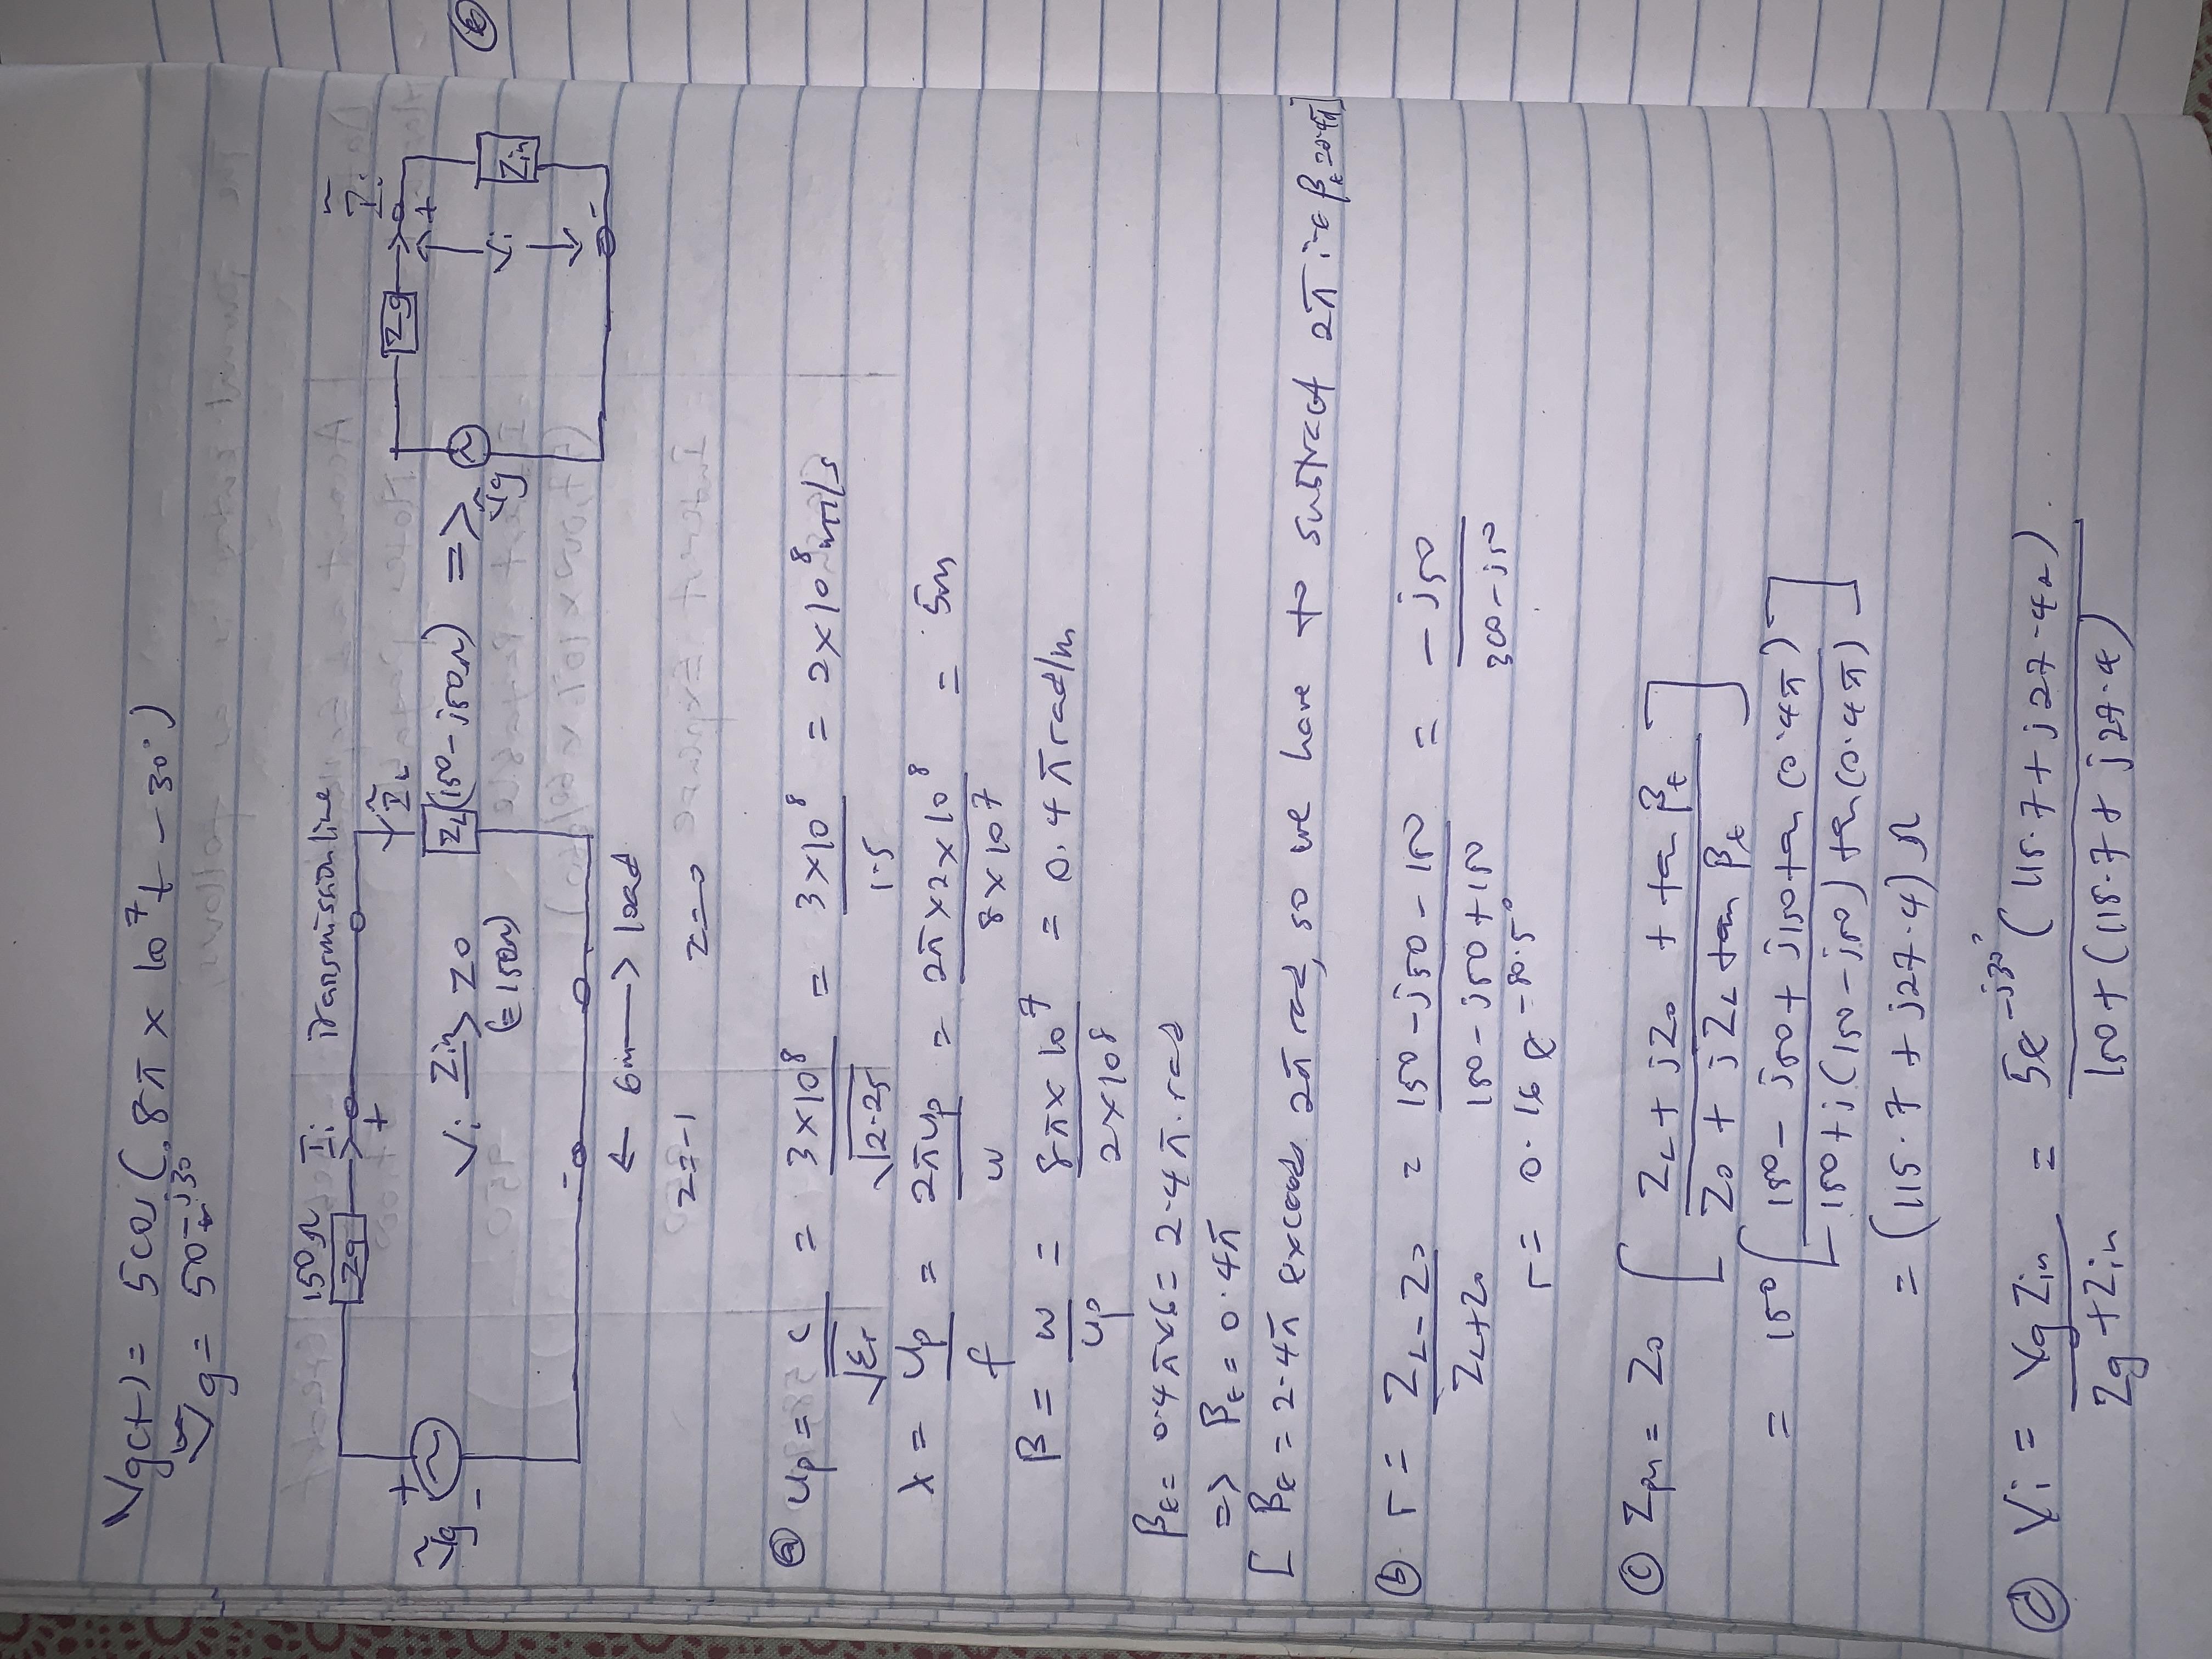 Vg(t) = 5cos(8π x 10^7 t - 30°)
Ṽg = 50^-j30
150Ω Ĩi transmission line Ĩi
Zg + ĨL Zg +
+ Ṽg - Vi Zin> Z0 (= 150Ω) ZL (150-j50Ω) => Ṽg Vi Zin
- -
← 6m → load
z=-1 z=0
ⓐ up = c/√εr = 3x10^8/√2.25 = 3x10^8/1.5 = 2x10^8 m/s
λ = up/f = 2πup/w = 2πx2x10^8/8x10^7 = 5m
β = w/up = 8πx10^7/2x10^8 = 0.4π rad/m
βt = 0.4πx6 = 2.4π.rad
=> βt = 0.4π
[ βt = 2.4π exceeds 2π rad, so we have to substract 2π i-e βt=0.4π]
ⓑ Γ = ZL-Z0/ZL+Z0 = 150-j50-150/150-j50+150 = -j50/300-j50
Γ = 0.16 e^-80.5°
ⓒ Zin = Z0 [ZL+jZ0 + tan βt/Z0+jZL tan βt]
= 150 [150-j50+j150tan(0.4π)/150+j(150-j50)tan(0.4π)]
= (115.7+j27.4)Ω
ⓓ Vi = VgZin/Zg+Zin = 5e^-j30° (115.7+j27.42)/150+(115.7+j27.4)